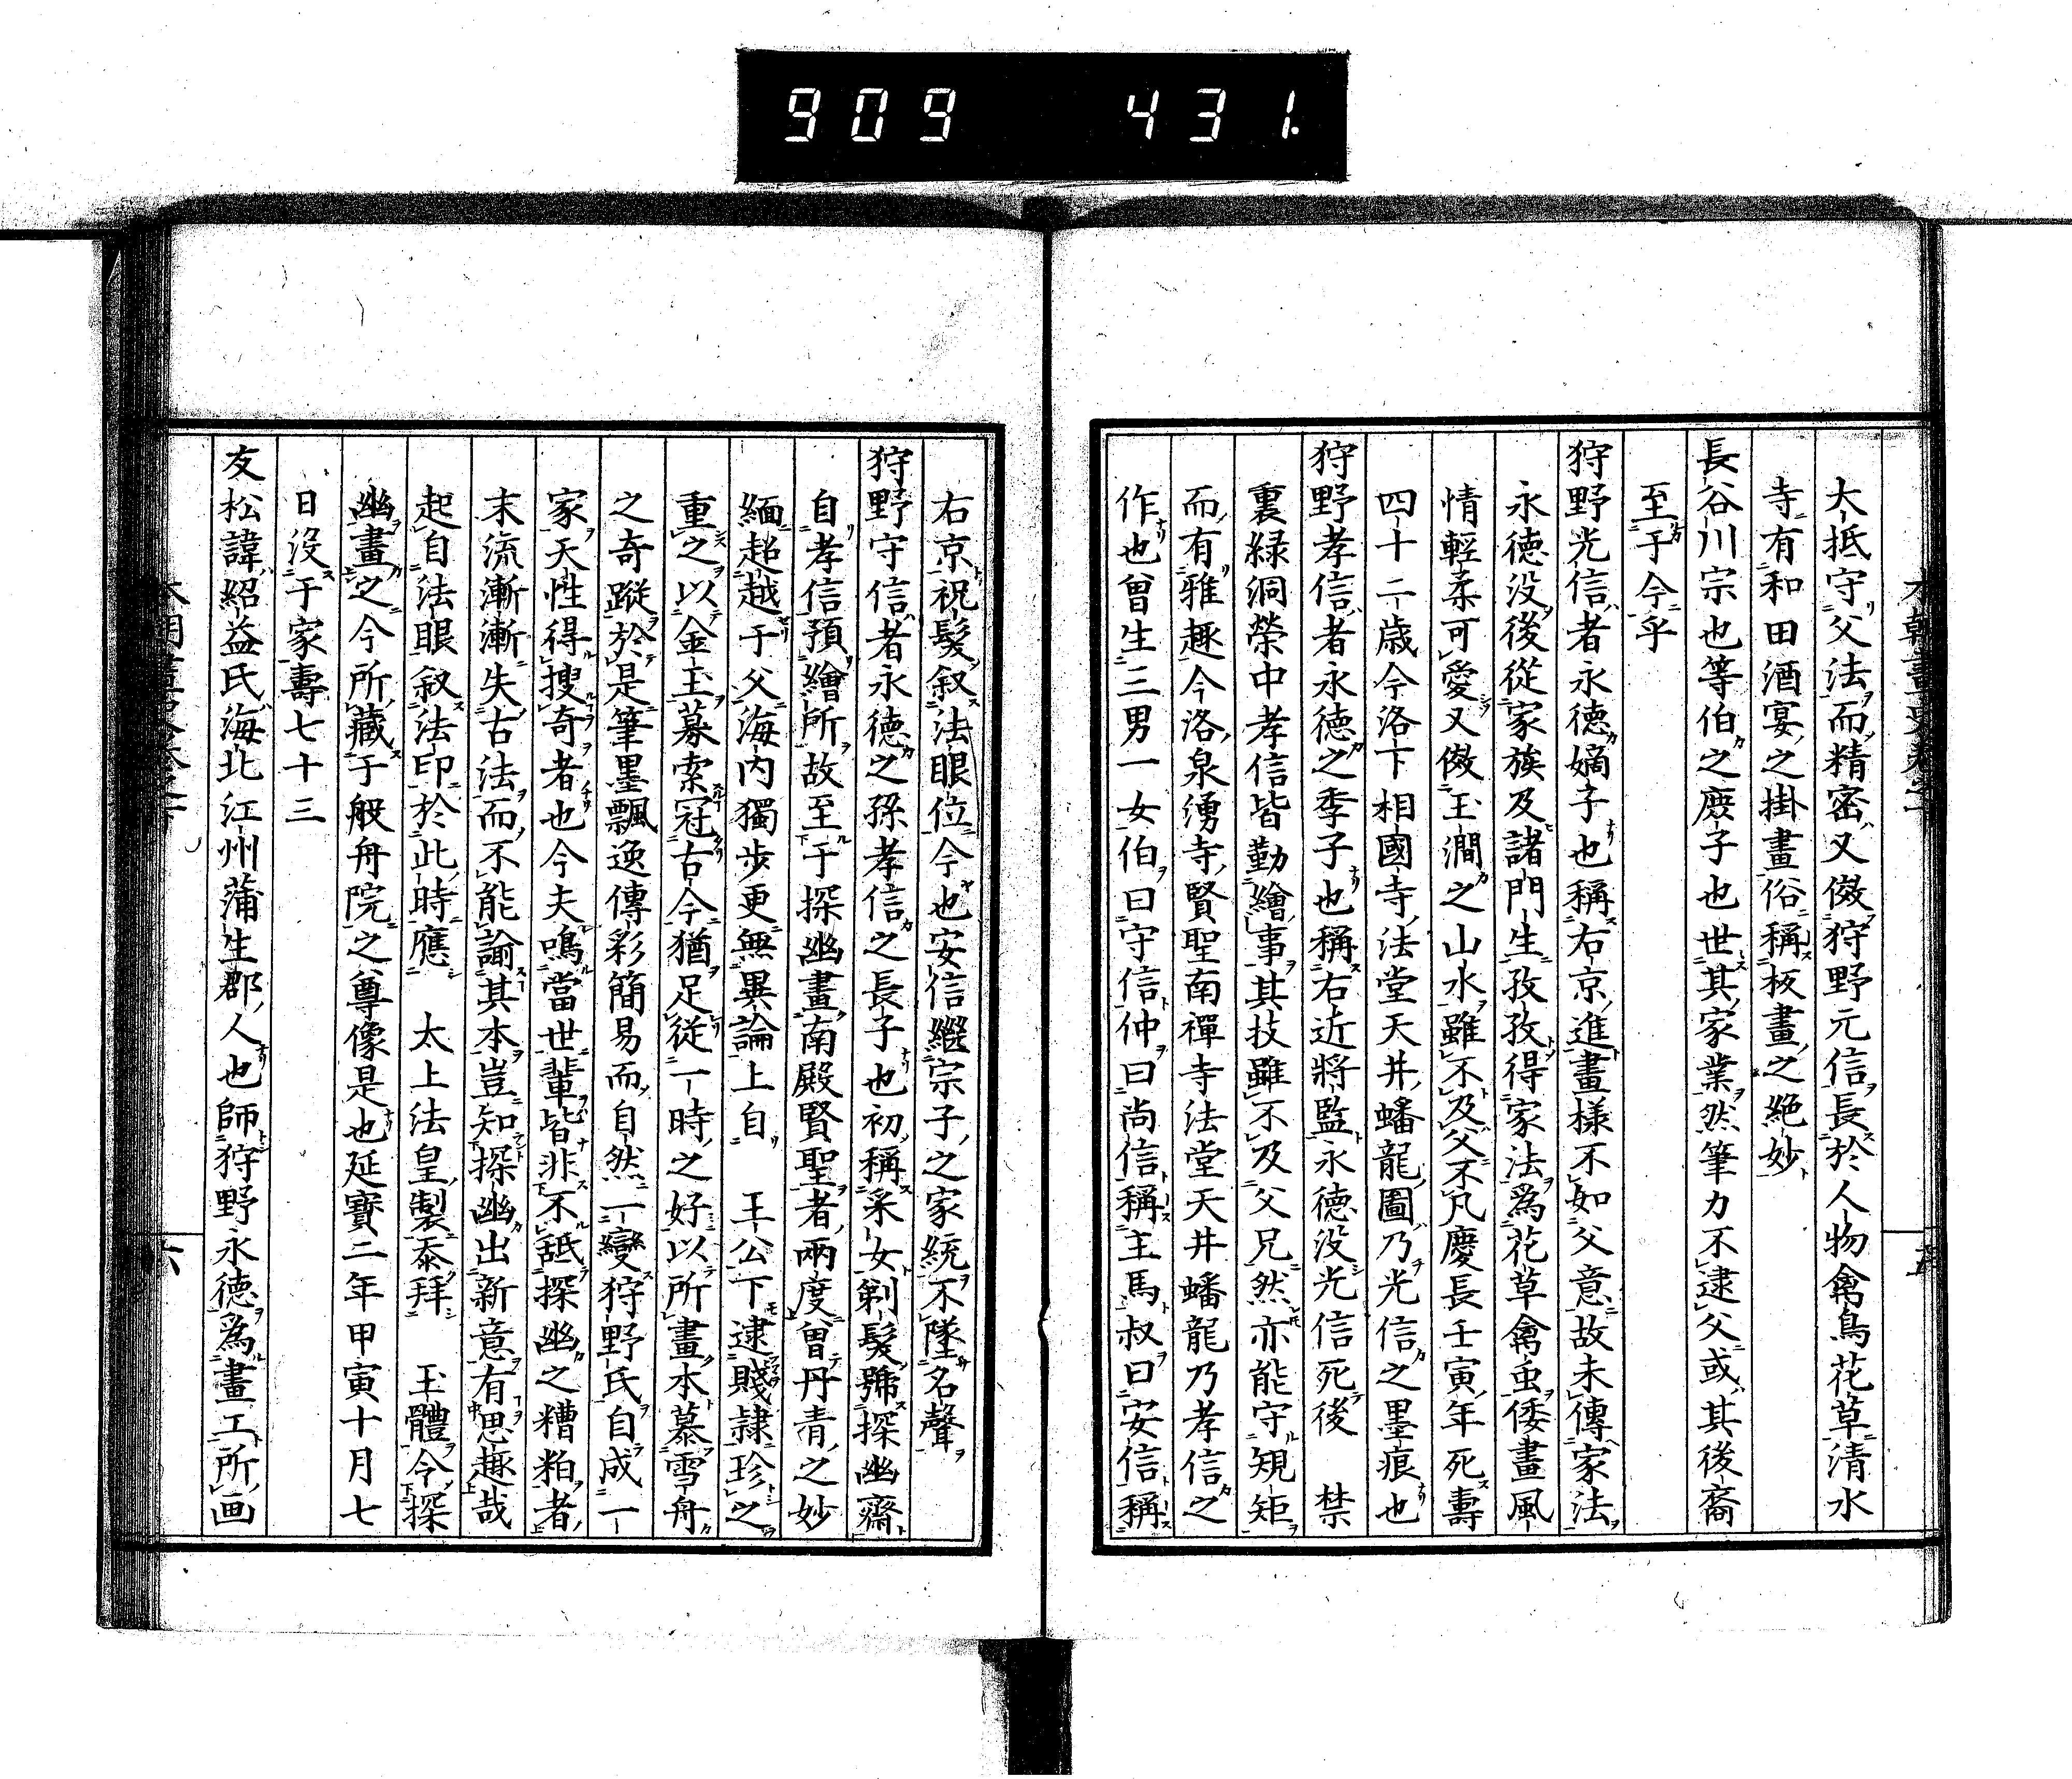 909 431.
太抵守父法而精密又倣狩野元信長於人物禽鳥花草清水
寺有和田酒宴之掛畫俗稱板畫之絶妙
長谷川宗也等伯之庶子也世其家業然筆力不逮父或其後裔
至于今乎
狩野光信者永徳嫡子也稱右京進畫樣不如父意故未傳家法
永徳没後從家族及諸門生孜孜得家法爲花草禽虫倭畫風
情輕柔可愛又倣玉澗之山水雖不及父不凡慶長壬寅年死壽
四十二歳今洛下相國寺法堂天井蟠龍圖乃光信之墨痕也
狩野孝信者永徳之季子也稱右近將監永徳没光信死後　禁
裏緑洞榮中孝信皆勤繪事其技雖不及父兄然亦能守規矩
而有雅趣今洛泉湧寺賢聖南禪寺法堂天井蟠龍乃孝信之
作也曾生三男一女伯曰守信仲曰尚信稱主馬叔曰安信稱
右京祝髮叙法眼位今也安信繼宗子之家統不墜名聲
狩野守信者永徳之孫孝信之長子也初稱采女剃髮號探幽齋
自孝信預繪所故至于探幽畫南殿賢聖者兩度曾丹青之妙
緬超越于父海内獨歩更無異論上自　王公下逮賤隷珍之
重之以金玉募索冠古今猶足從一時之好以所畫本慕雪舟
之奇蹤於是筆墨飄逸傳彩簡易而自然一變狩野氏自成一
家天性得搜奇者也今夫鳴當世輩皆非不舐探幽之糟粕者
末流漸漸失古法而不能諭其本豈知探幽出新意有思趣哉
起自法眼叙法印於此時應　太上法皇製泰拜　玉體今探
幽畫之今所藏于般舟院之尊像是也延寶二年甲寅十月七
日没于家壽七十三
友松諱紹益氏海北江州蒲生郡人也師狩野永徳爲畫工所画
六